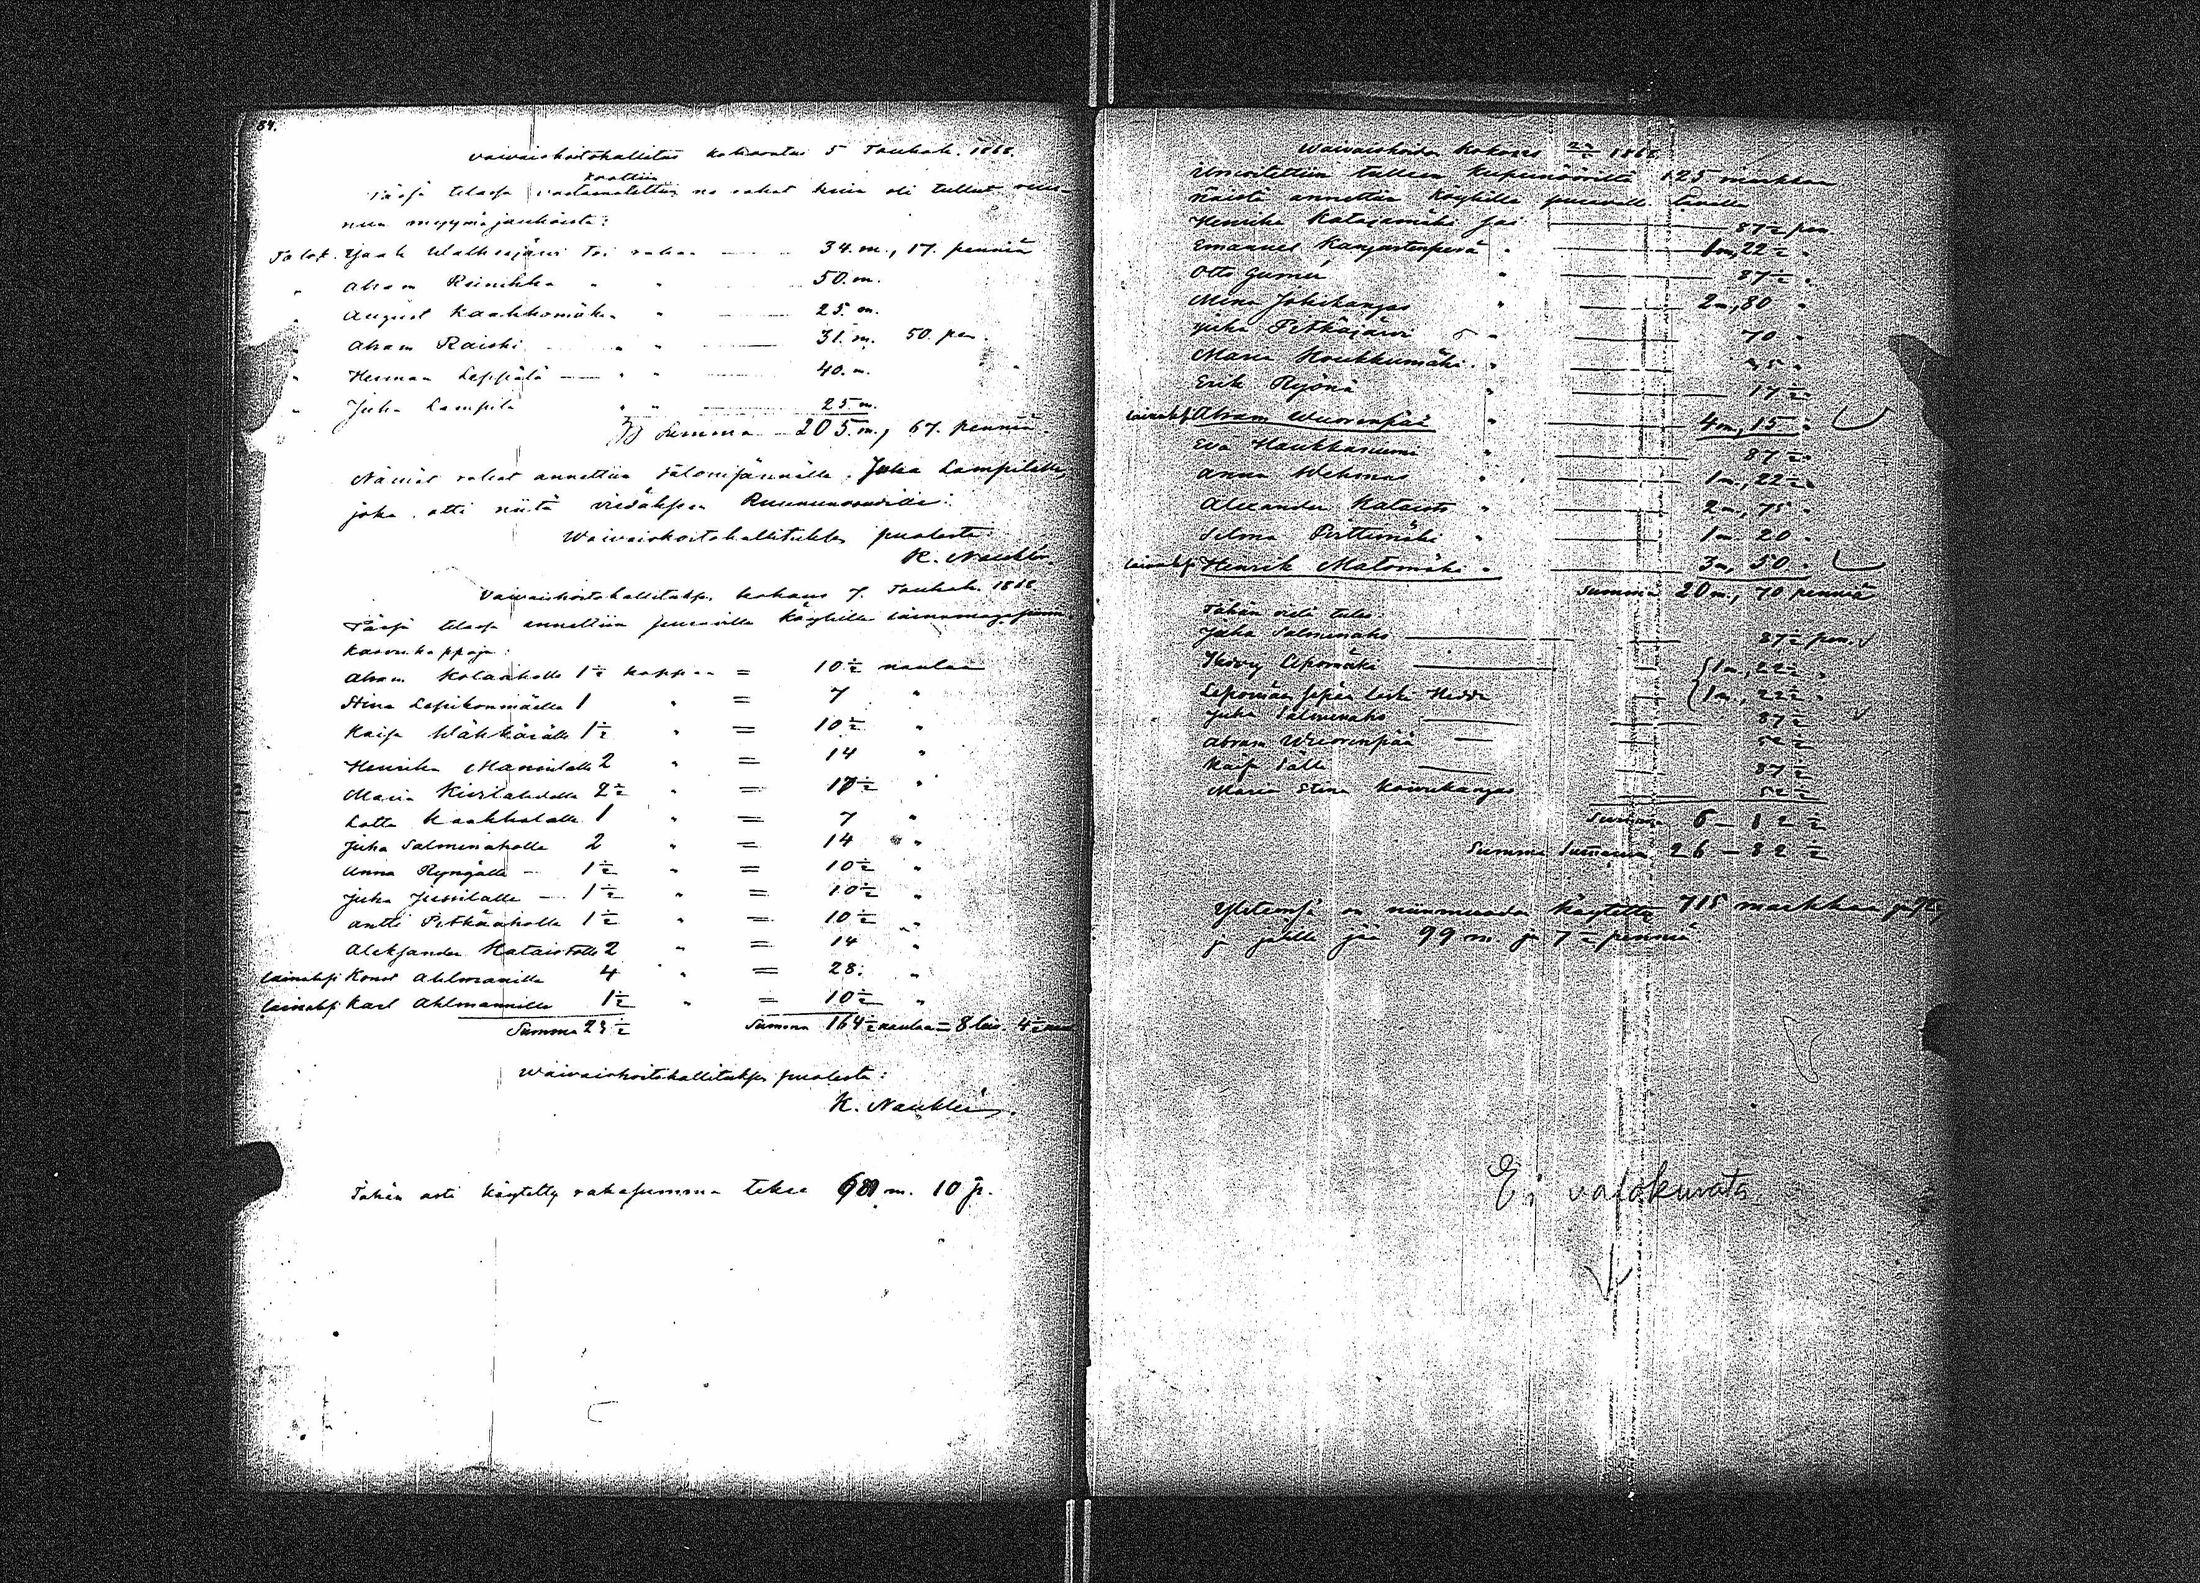 54.
Vaivaishoitohallitus kokoontui 5 Toukok. 1868.
koottiin
Tässä tilassa vastaanotettiin ne rahat kuin oli tullut
nun myymäjauhoista:
Talok. Isaak Walkeajärvi toi rahaa — 34. m., 17. penniä
" Abram Riinikka " " — 50. m.
" August Kaakkomäki " — 25. m.
" Abram Raiski " " — 31. m. 50. pen.
" Herman Leppälä — " " — 40. m.
" Juha Lampila " " — 25 m.
Summa — 205. m., 67. penniä.
Nämät rahat annettiin talonisännälle Juha Lampilalle,
joka otti niitä viedäksen
Waivaishoitohallituksen puolesta:
K. Nauklér.
Vaivaishoitohallituks. kokous 7. Toukok. 1868
Tässä tilassa annettiin seuraaville köyhille lainamagasiinin
kasvu kappoja:
Abram Kolaaholle 1 1/2 kappaa = 10 1/2 naulaa
Stina Lepikonmäelle 1 " = 7 "
Kaisa Wähkärälle 1 1/2 " = 10 1/2 "
Henrika Mannilalle 2 " = 14 "
Maria Kivilahdelle 2 1/2 " = 17 1/2 "
Lotta Kaakkolalle 1 " = 7 "
Juha Salmenaholle 2 " = 14 "
Anna Ryngälle — 1 1/2 " = 10 1/2 "
Juha Jussilalle — 1 1/2 " = 10 1/2 "
Antti Pitkäaholle 1 1/2 " = 10 1/2 "
Aleksander Kataistolle 2 " = 14 "
lainaksi Konst Ahlmanille 4 " = 28. "
lainaksi Karl Ahlmannille 1 1/2 " = 10 1/2 "
Summa 23 1/2 Summa 164 1/2 naulaa = 8 leiv. 4 1/2
Waivaishoitohallituksen puolesta:
K. Nauklér.
Tähän asti käytetty rahasumma tekee m. 10 p.
Waivaishoidon kokous 1868
Ilmoitettiin tulleen 125 markkaa
Näistä annettiin köyhille seuraavalla tavalla
Henrika Katajamäki sai — 87 1/2 pen
Emanuel Kangastenperä " — 1 m, 22 1/2 "
Otto Gumer " — 87 1/2 "
Mina Jokikangas " — 2 m, 80 "
Juha Pitkäjärvi " — 70 "
Maria Houkkumäki " —
Erik Ryönä " — 17 1/2
lainaksi Abram Wuorenpää " — 4 m, 15 "
Eva Haukkaniemi " — 87 1/2
Anna Wehmas " — 1 m, 22 1/2
Alexander Kataisto " — 2 m, 75 "
Silma Perttimäki " — 1 m 20 "
lainaksi Henrik Matomäki " — 3 m, 50 "
Summa 20 m, 70 penniä
Tähän vielä tulee:
Juha Salmenaho — 87 1/2 pen.
Heddvig Lepomäki — 1 m, 22 1/2 "
Lepomäen sepän leski Hedda — 1 m, 22 1/2 "
Juha Salmenaho — 87 1/2
Abram Wuorenpää — 52 1/2
Kaisa Salle — 87 1/2
Maria Stina Koivukangas — 52 1/2
Summa 6 — 12 1/2
Summa Summarum 26 — 82 1/2
Yhteensä on niinmuodon käytetty 715 markkaa ja
ja jäälle jää 99 m ja 7 1/2 penniä.
Ei valokuvata